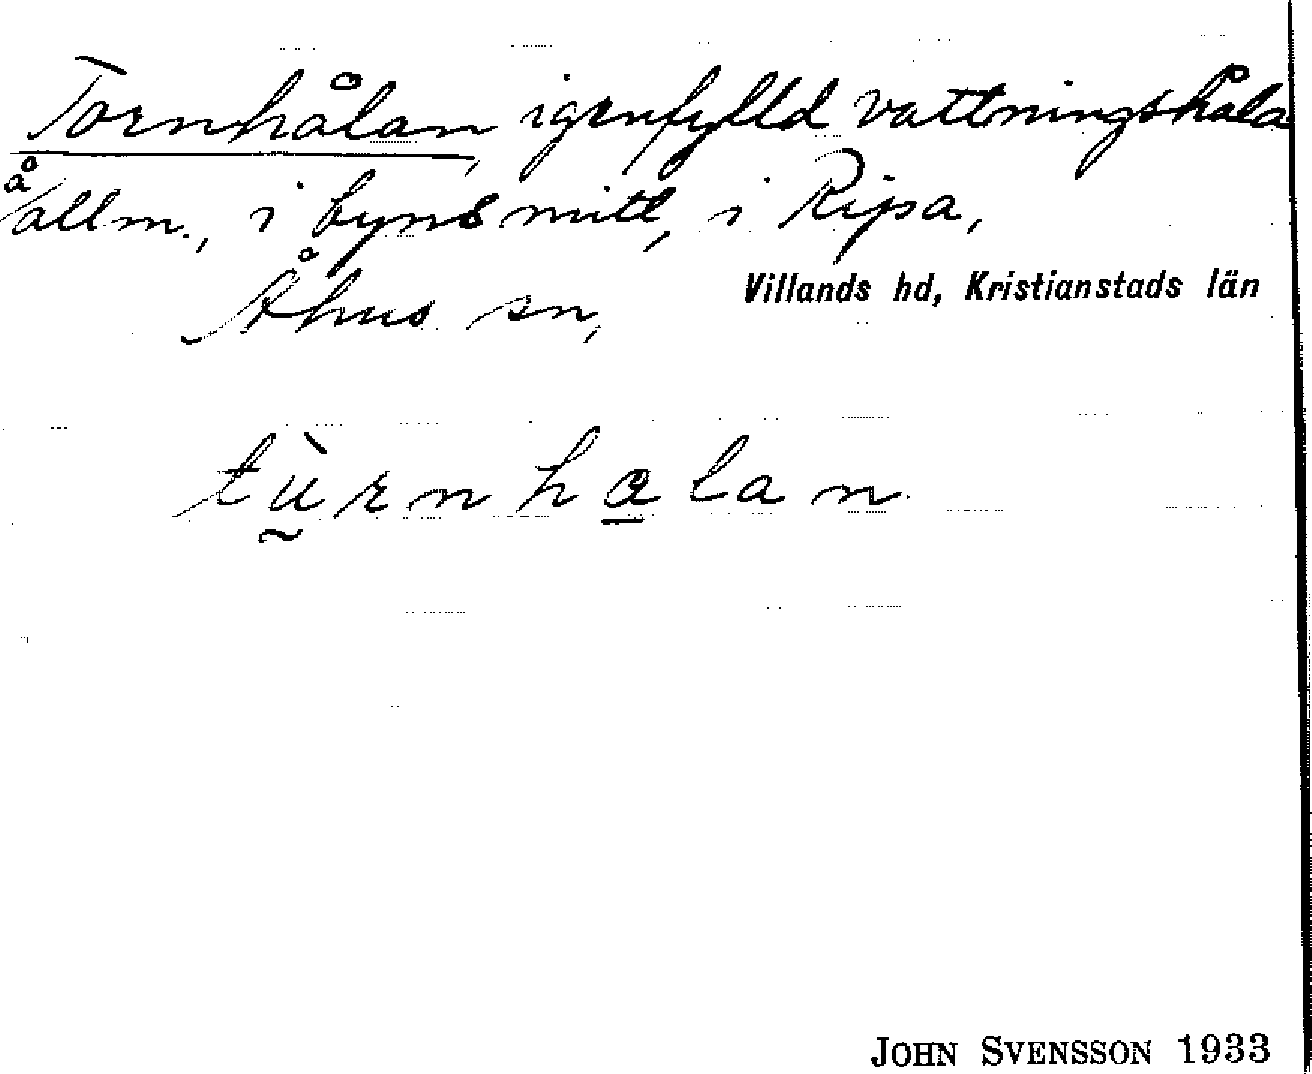 Tornhålan, igenfylld vattningshåla
å allm., i byns mitt, i Ripa,
Åhus sn, Villands hd, Kristianstads län
tùrnhalan
JOHN SVENSSON 1933